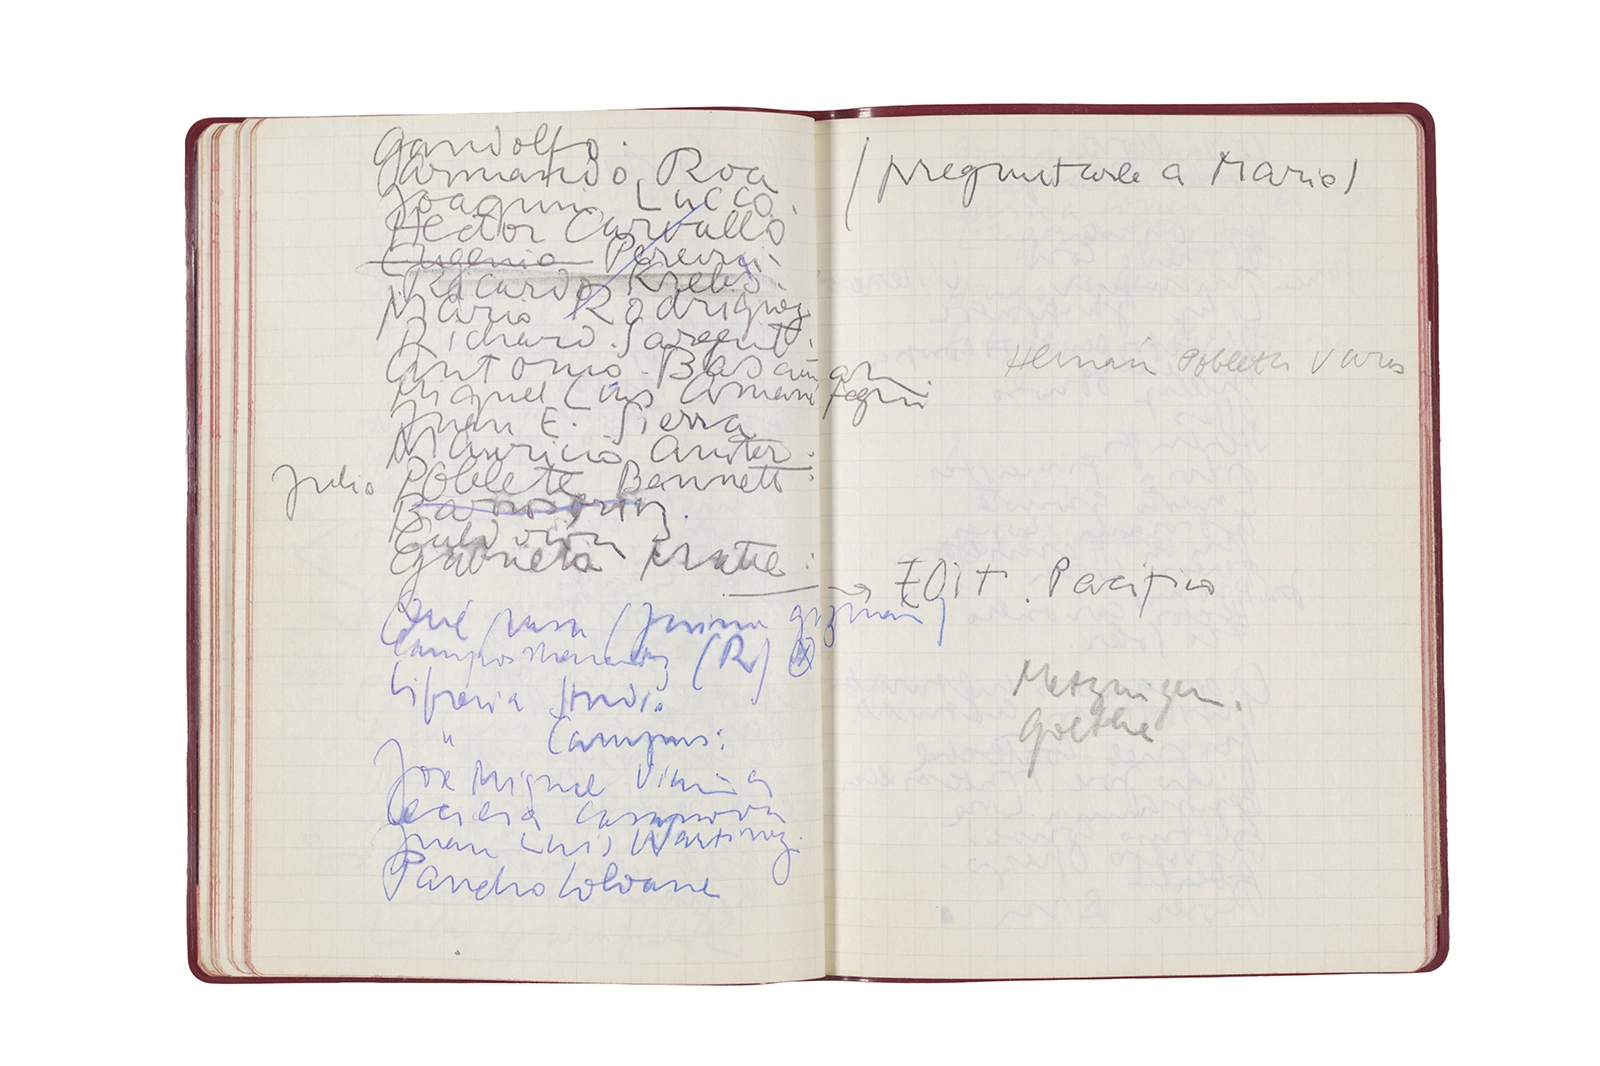 Gandolfo.
Armando Roa
Joaquin Lucco.
Hector Carvallo
Eugenio Pereira.
Ricardo Krebs.
Mario Rodriguez
Richard Sargent.
Antonio Bascuñan
Miguel Luis Amunátegui
Juan E. Sierra
Mauricio Amster.
Julio Poblete Bannett
Gabriela Matte.
Qué pasa (Jaime Guzmán)
Campos Menendez (R)
Libreria Studio
" Campus:
Jose Miguel Vicuña
Cecilia Casanova
Juan Luis Martinez.
Pancho Coloane
(preguntarle a Mario)
Hernán Poblete Varas
→ Edit. Pacifico
Goethe